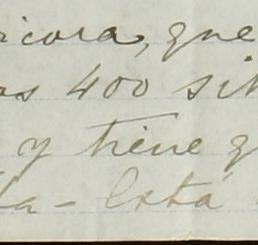 icora, que
os 400 sit
y tiene q
ta - Está